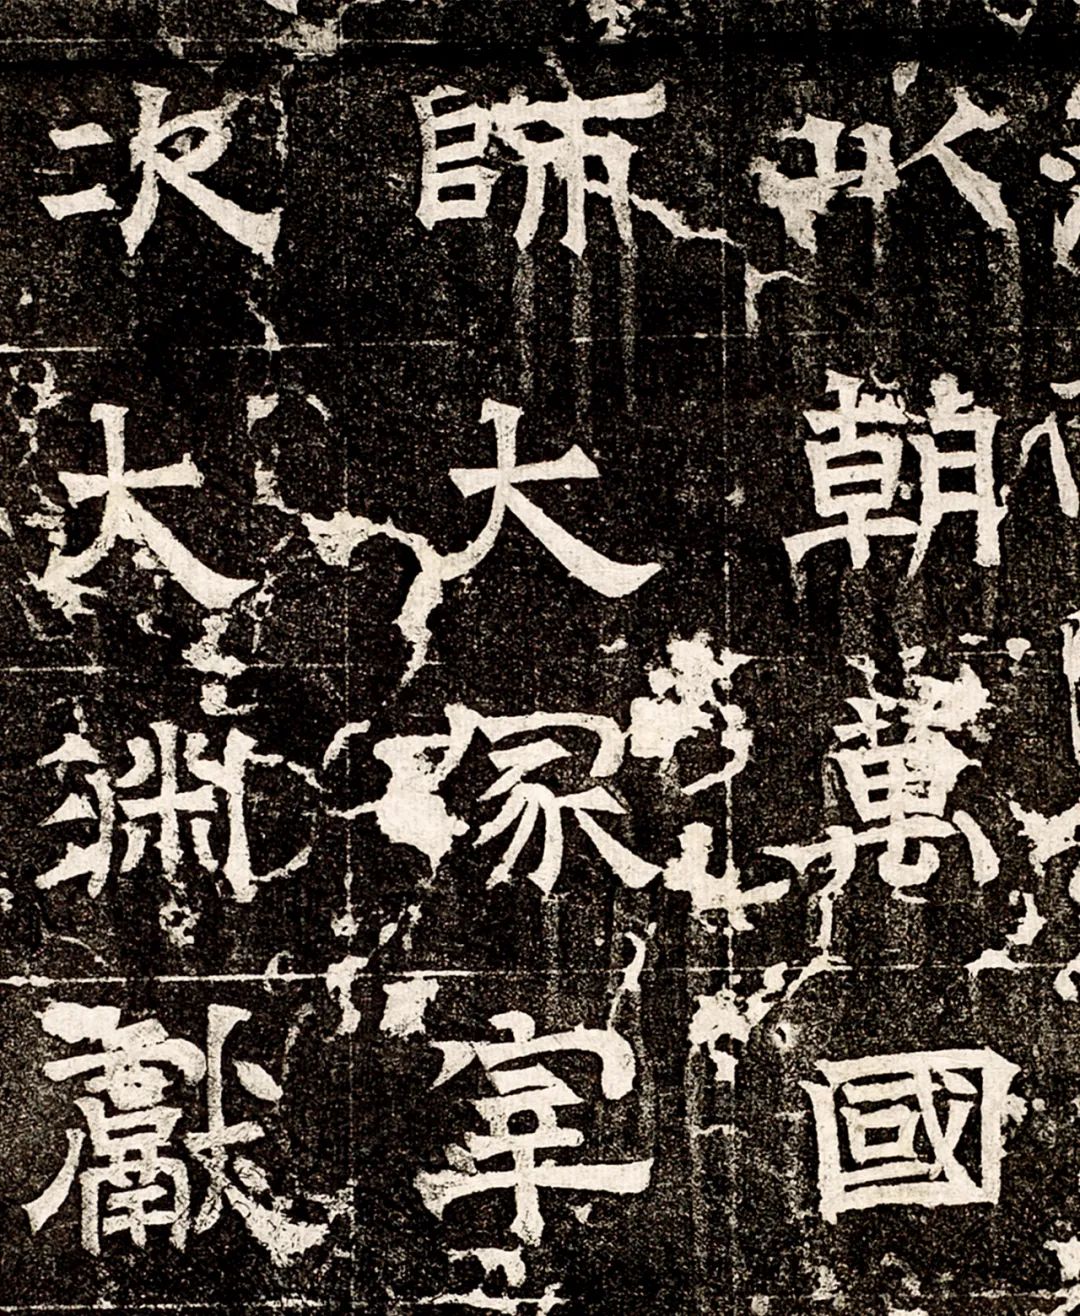 以朝萬國
師大冢宰
次大淵獻